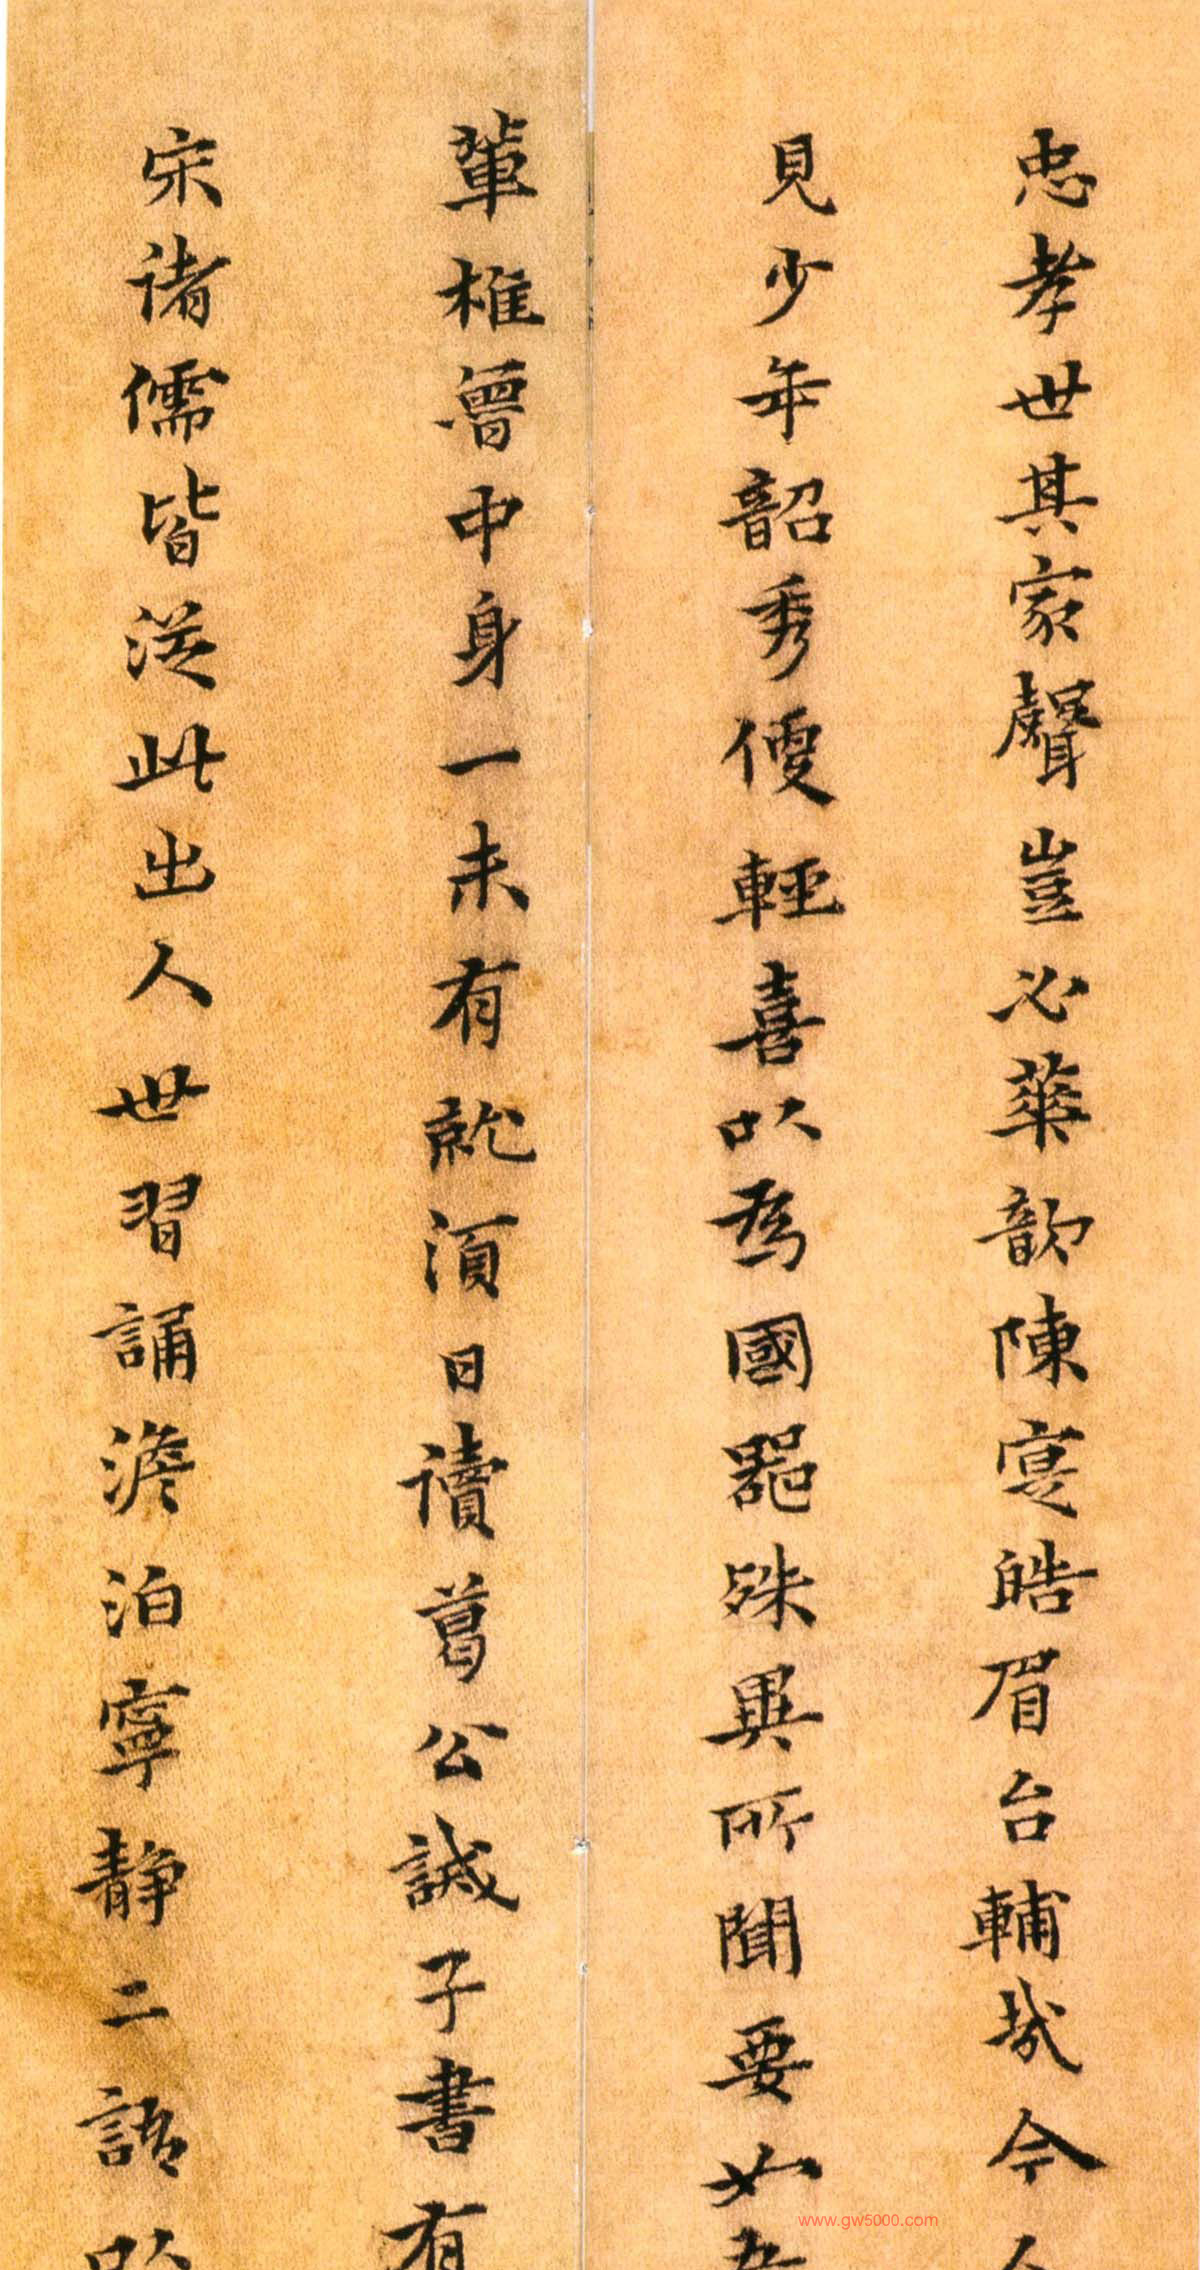 忠孝世其家聲豈必華歆陳寔皓眉台輔哉今人
見少年韶秀便輕喜以為國器殊異所聞要如吾
輩椎魯中身一未有就須日讀葛公誡子書有
宋諸儒皆從此出人世習誦澹泊寧靜二語以
www.gw5000.com